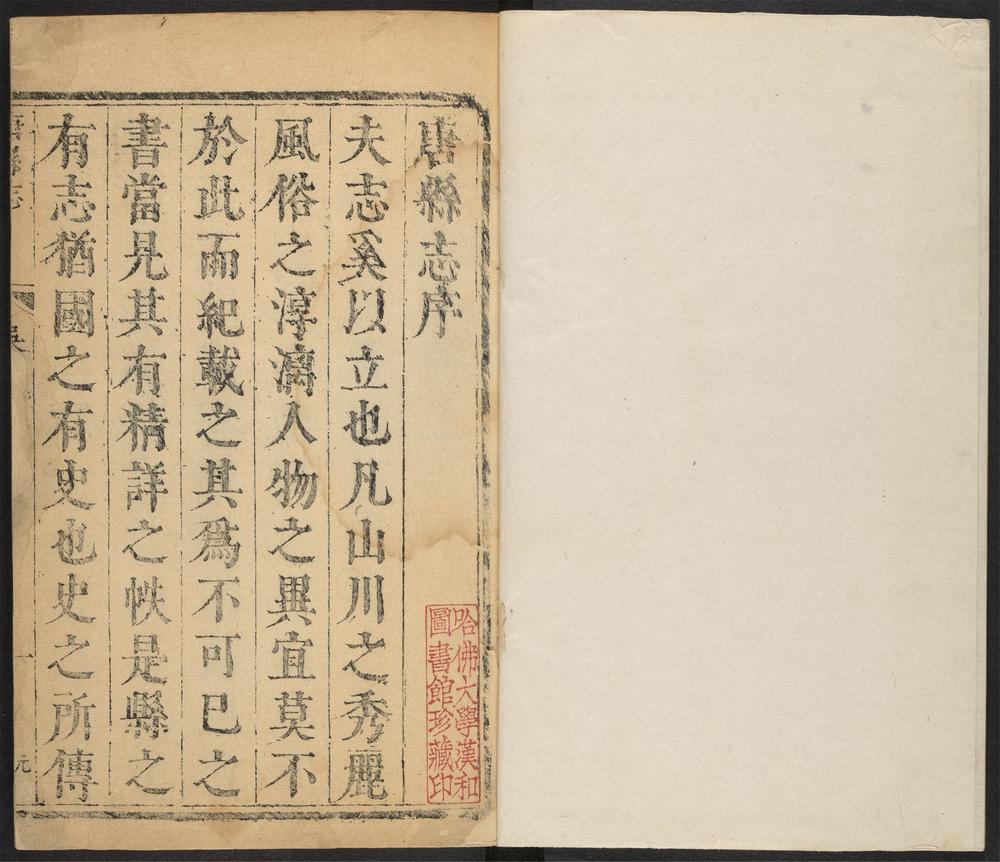 唐縣志序
夫志奚以立也凡山川之秀麗
風俗之淳漓人物之異宜莫不
於此而紀載之其爲不可已之
書當見其有精詳之帙是縣之
有志猶國之有史也史之所傳
唐縣志
一
元
哈佛大學漢和
圖書館珍藏印